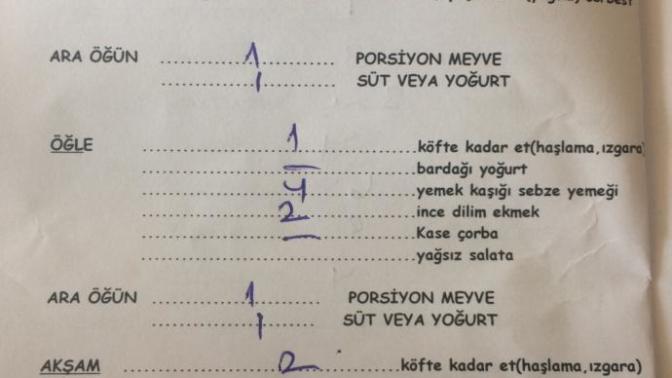 ARA ÖĞÜN ........ 1 ........ PORSİYON MEYVE
........ 1 ........ SÜT VEYA YOĞURT
ÖĞLE ........ 1 ........ köfte kadar et(haşlama,ızgara
........ — ........ bardağı yoğurt
........ 4 ........ yemek kaşığı sebze yemeği
........ 2 ........ ince dilim ekmek
........ — ........ Kase çorba
........ yağsız salata
ARA ÖĞÜN ........ 1 ........ PORSİYON MEYVE
........ 1 ........ SÜT VEYA YOĞURT
AKŞAM ........ 2 ........ köfte kadar et(haşlama,ızgara)